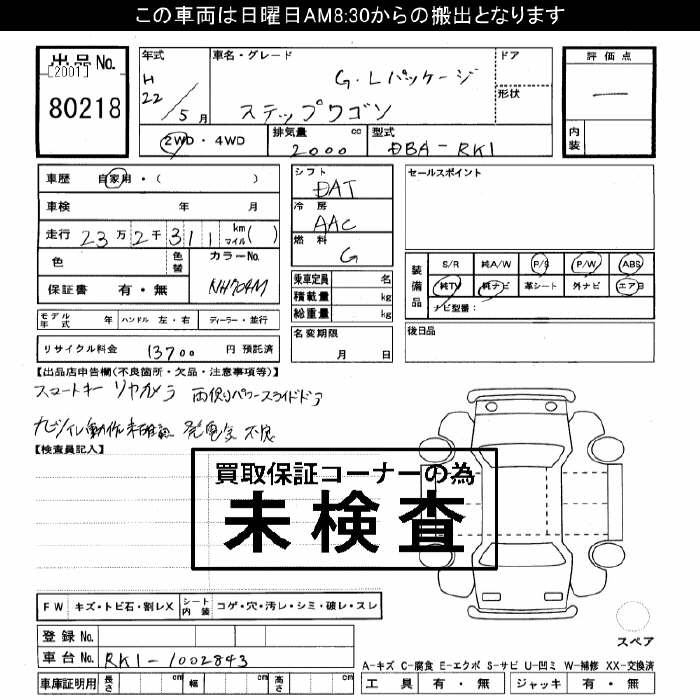 この車両は日曜日AM8:30からの搬出となります
出品No.
[2001]
80218
年式
H
22
/5月
車名・グレード
G・Lパッケージ
ステップワゴン
ドア
形状
評価点
—
内装
2WD・4WD
排気量 cc
2000
型式
DBA-RK1
車歴 自家用・( )
車検 年 月
走行 23万2千311 km マイル( )
色
色替
カラーNo.
NH704M
保証書 有・無
モデル年式 年 ハンドル 左・右 ディーラー・並行
リサイクル料金 13700 円 預託済
シフト
DAT
冷房
AAC
燃料
G
乗車定員 名
積載量 kg
総重量 kg
名変期限
月 日
セールスポイント
装備品
S/R 純A/W P/S P/W ABS
純TV 純ナビ 革シート 外ナビ エアB
ナビ型番:
後日品
【出品店申告欄(不良箇所・欠品・注意事項等)】
スマートキー リヤカメラ 両側パワースライドドア
ナビ/TV動作未確認 発電気 不良
【検査員記入】
買取保証コーナーの為
未検査
FW キズ・トビ石・割レX シート内装 コゲ・穴・汚レ・シミ・破レ・スレ
登録No.
車台No. RK1-1002843
車庫証明用 長さ cm 幅 cm 高さ cm
スペア
A-キズ C-腐食 E-エクボ S-サビ U-凹ミ W-補修 XX-交換済
工具 有・無 ジャッキ 有・無